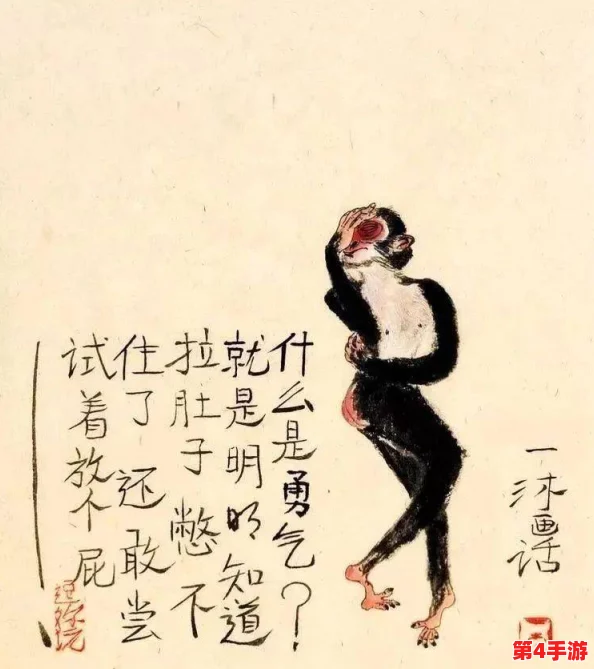 什么是勇气？
就是明明知道
拉肚子 憋不
住了 还敢尝
试着放个屁
一沐画话
第4手游